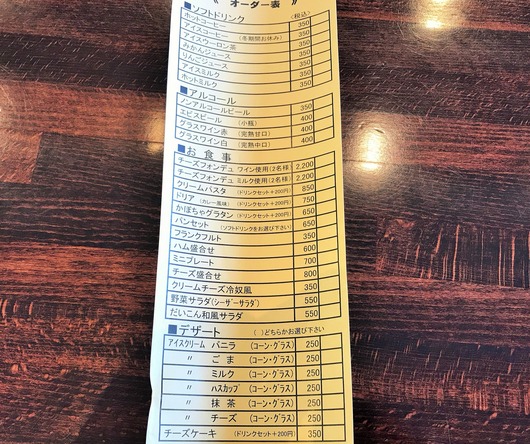 《 オーダー表 》
■ソフトドリンク (税込)
ホットコーヒー 350
アイスコーヒー (冬期間お休み) 350
アイスウーロン茶 350
みかんジュース 350
りんごジュース 350
アイスミルク 350
ホットミルク 350
■アルコール
ノンアルコールビール 350
エビスビール (小瓶) 400
グラスワイン赤 (完熟甘口) 400
グラスワイン白 (完熟中口) 400
■お食事
チーズフォンデュ ワイン使用(2名様) 2,200
チーズフォンデュ ミルク使用(2名様) 2,200
クリームパスタ (ドリンクセット+200円) 850
ドリア (カレー風味) (ドリンクセット+200円) 750
かぼちゃグラタン (ドリンクセット+200円) 650
パンセット (ソフトドリンクをお選び下さい) 650
フランクフルト 350
ハム盛合せ 600
ミニプレート 700
チーズ盛合せ 800
クリームチーズ冷奴風 350
野菜サラダ(シーザーサラダ) 550
だいこん和風サラダ 550
■デザート ( )どちらかお選び下さい
アイスクリーム バニラ (コーン・グラス) 250
〃 ごま (コーン・グラス) 250
〃 ミルク (コーン・グラス) 250
〃 ハスカップ (コーン・グラス) 250
〃 抹茶 (コーン・グラス) 250
〃 チーズ (コーン・グラス) 250
チーズケーキ (ドリンクセット+200円) 350